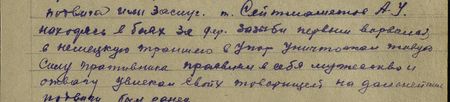 подвига или заслуг. т. Сейтмаметов А.У.
находясь в боях за д-р. первым ворвался
в немецкую траншею в упор уничтожал живую
силу противника проявляя в себя мужество и
отвагу увлекая своих товарищей на дальнейшие
подвиги был ранен